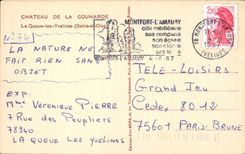 CHATEAU DE LA COUHARDE
La Queue-les-Yvelines (Seine-et-Oise)
N° 74
LA NATURE NE
FAIT RIEN SANS
OBJET
EXP:
Mme VERONIQUE PIERRE
7 Rue des Peupliers
78940
LA QUEUE LEZ YVELINES
MONTFORT-L'AMAURY
cité médiévale
ses remparts
son église
87
2,20
TELE-LOISIRS
Grand Jeu
Cedex 2012
75601 PARIS-BRUNE